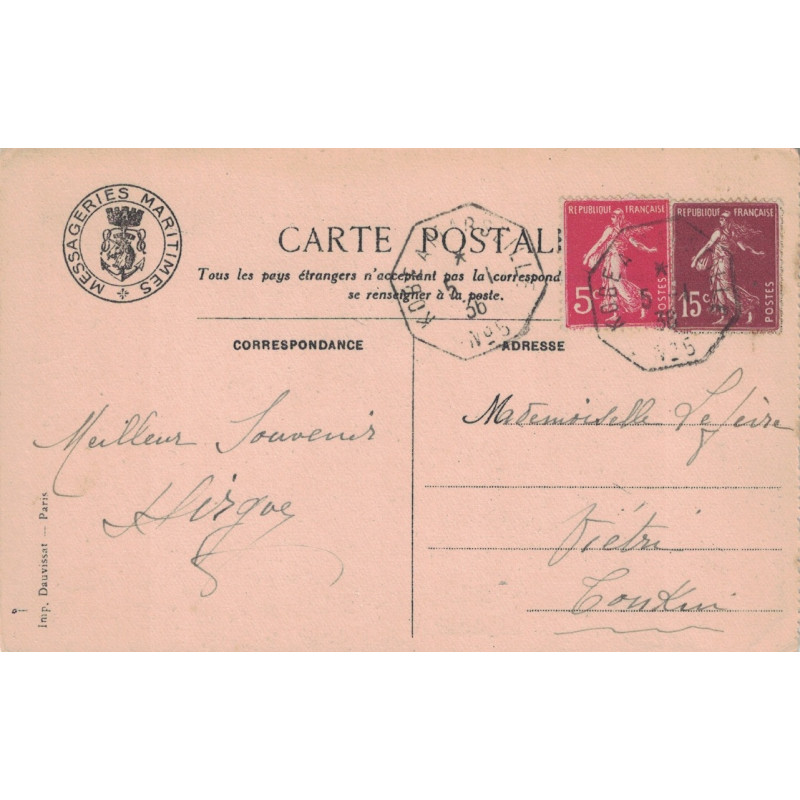 MESSAGERIES MARITIMES
CARTE POSTALE
Tous les pays étrangers n'acceptant pas la correspond
se renseigner à la poste.
REPUBLIQUE FRANÇAISE
5c
POSTES
REPUBLIQUE FRANÇAISE
15c
POSTES
KOBE A MARSEILLE
5
36
N°5
KOBE A
5
36
N°5
CORRESPONDANCE
ADRESSE
Meilleur Souvenir
Mademoiselle Lefèvre
Viétri
Tonkin
Imp. Dauvissat — Paris